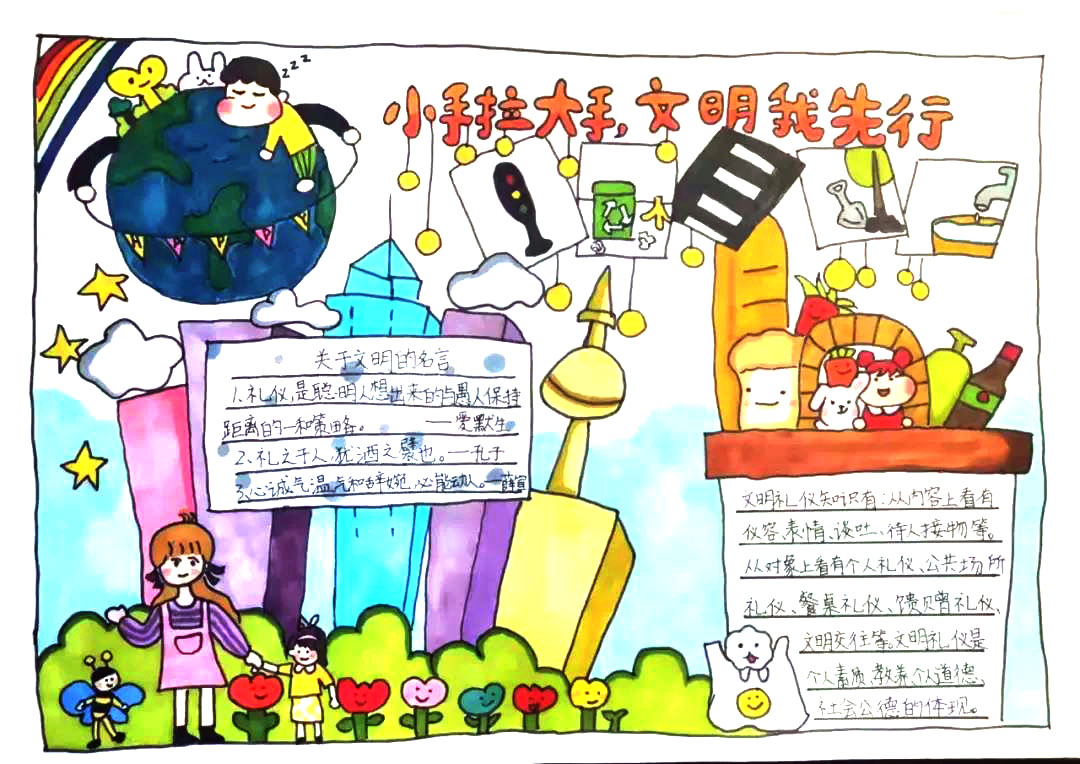 zzz
小手拉大手,文明我先行
关于文明的名言
1.礼仪,是聪明人想出来的与愚人保持
距离的一种策略。——爱默生
2.礼之于人,犹酒之蘖也。—孔子
3.心诚气温,气和辞婉,必能动人。—薛宣
文明礼仪知识有:从内容上看有
仪容、表情、谈吐、待人接物等。
从对象上看有个人礼仪、公共场所
礼仪、餐桌礼仪、馈赠礼仪、
文明交往等。文明礼仪是
个人素质、教养、个人道德、
社会公德的体现。